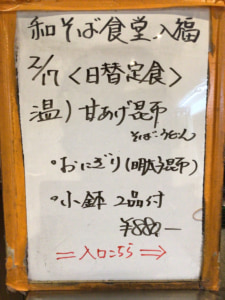 和そば食堂 入福
2/17 <日替定食>
温) 甘あげ昆布
そば・うどん
・おにぎり(明太昆布)
・小鉢 2品付
¥880-
⇒ 入口こちら ⇒